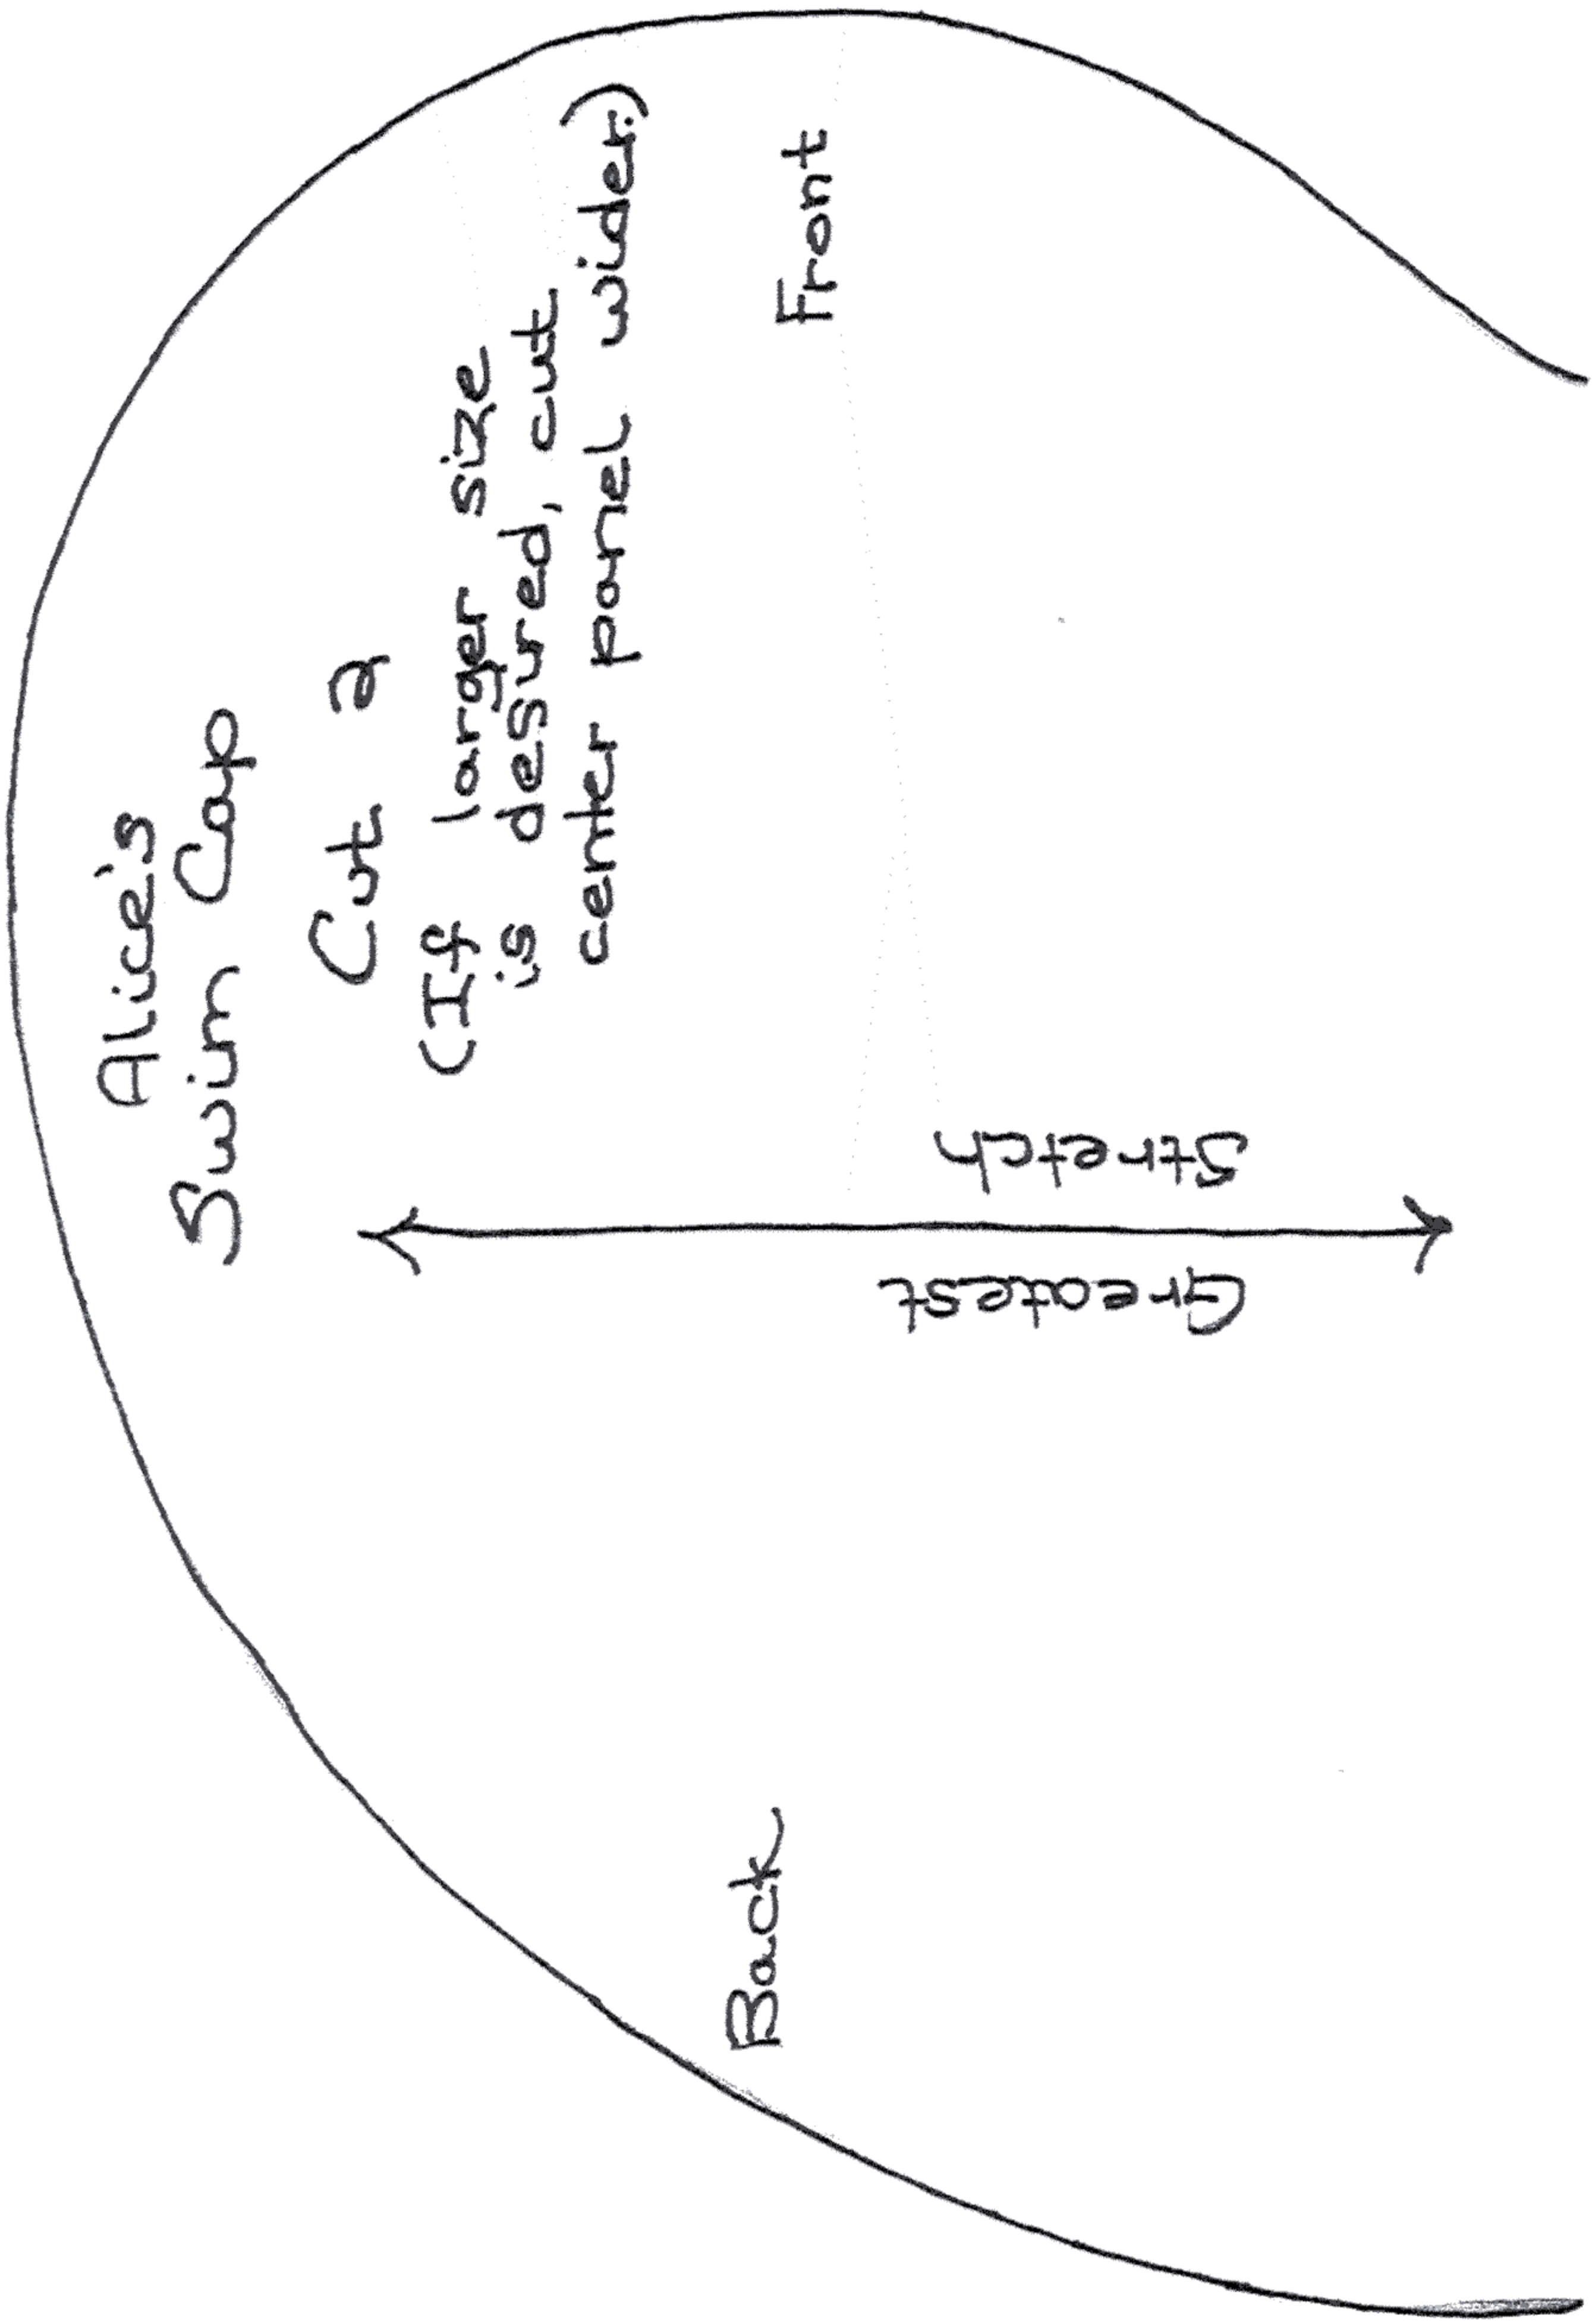 Alice's
Swim Cap
Cut 2
(If larger size
is desired, cut
center panel wider.)
Front
Back
Greatest
Stretch